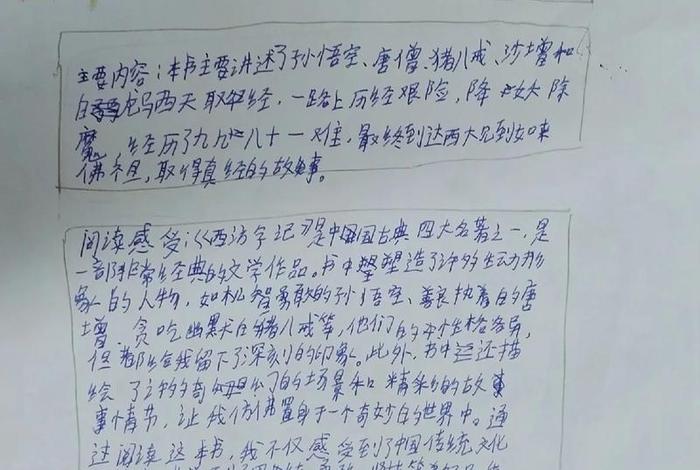 主要内容:本书主要讲述了孙悟空、唐僧、猪八戒、沙增和
白龙马西天取经,一路上历经艰险,降妖除
魔,经历了九九八十一难,最终到达西天见到如来
佛祖,取得真经的故事。
阅读感受:《西访字记》是中国古典四大名著之一,是
一部非常经典的文学作品。书中塑造了许多生动形
象的人物,如机智勇敢的孙悟空、善良执着的唐
增、贪吃幽默的猪八戒等,他们的性格各异,
但都给我留下了深刻的印象。此外,书中还描
绘了许多奇幻的场景和精彩的故事
事情节,让我仿佛置身于一个奇妙的世界中。通
过阅读这本书,我不仅感受到了中国传统文化